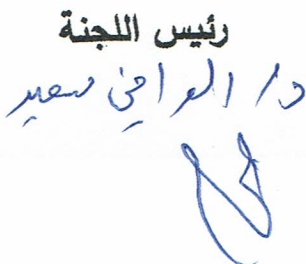 رئيس اللجنة
د/ الوافي سعيد